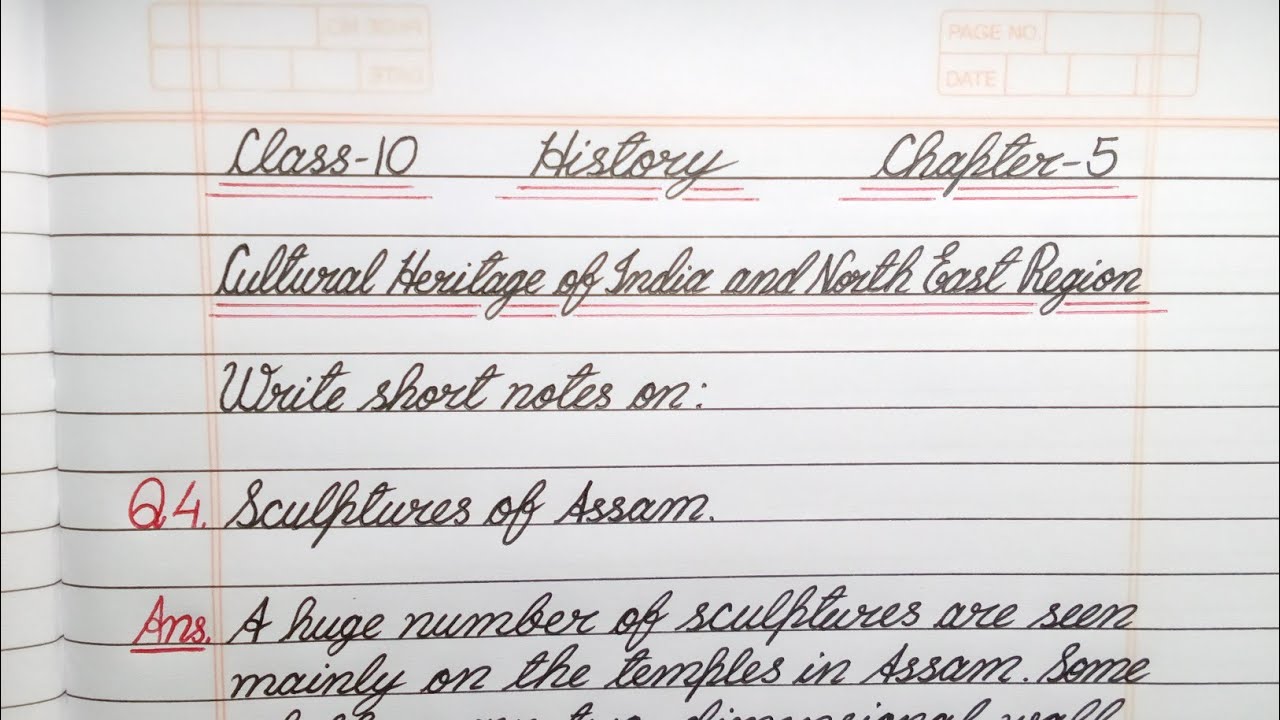 PAGE NO.
DATE
Class-10 History Chapter-5
Cultural Heritage of India and North East Region
Write short notes on:
Q4. Sculptures of Assam.
Ans. A huge number of sculptures are seen
mainly on the temples in Assam. Some
two dimensional wall